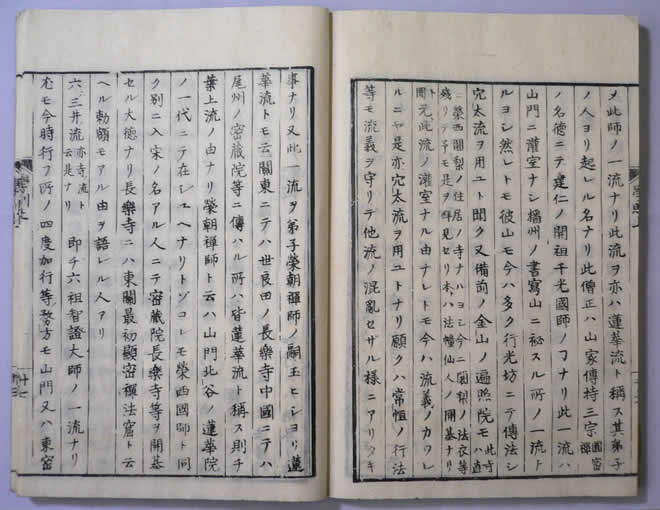 メ此師ノ一流ナリ此流ヲ亦ハ蓮華流ト稱ス其弟子
ノ人ヨリ起レル名ナリ此僧正ハ山家傳持三宗圓密禪
ノ名德ニテ建仁ノ開祖千光國師ノヿナリ此一流ハ
山門ニ灌室ナシ播州ノ書寫山ニ秘スル所ノ一流ト
ルヨシ然レトモ彼山モ今ハ多ク行光坊ニテ傳法シ
穴太流ヲ用ユト聞ク又備前ノ金山ノ遍照院モ此寺ハ直
ニ榮西闍梨ノ住居ノ寺ナルヨシ今ニ闍梨ノ法衣等
殘リテ予モ是ヲ拜見セリ本ハ法幢仙人ノ開基ナリ
元此流ノ灌室ナル由ナレトモ今ハ流義ノカワレ
ルニヤ是亦穴太流ヲ用ユトナリ願クハ常恒ノ行法
等モ流義ヲ守リテ他流ノ混亂セザル樣ニアリタキ
事ナリ又此一流ヲ弟子榮朝禪師ノ嗣玉ヒシヨリ蓮
華流トモ云關東ニテハ世良田ノ長樂寺中國ニテハ
尾州ノ密藏院等ニ傳ハル所ハ皆蓮華流ト稱ス則チ
葉上流ノ由ナリ榮朝禪師ト云ハ山門北谷ノ蓮華院
ノ一代ニテ在シユヘナリトゾコレモ榮西國師ト同
ク別ニ入宋ノ名アル人ニテ密藏院長樂寺等ヲ開基
セル大德ナリ長樂寺ニハ東關最初顯密禪法窟ト云
ヘル勅額モアル由ヲ語レル人アリ
六三井流亦寺流ト云是ナリ 即チ六祖智證大師ノ一流ナリ
尤モ今時行フ所ノ四度加行等務方モ山門又ハ東密